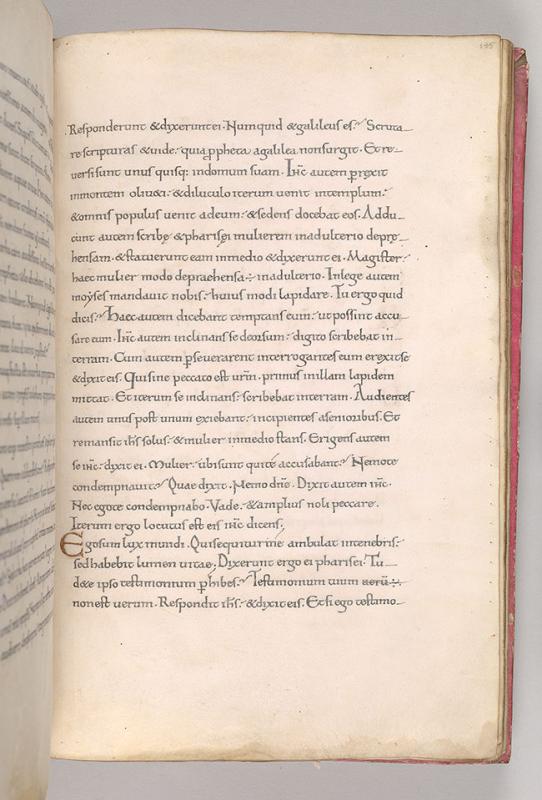 195
Responderunt & dixerunt ei. Numquid & galileus es? Scruta-
re scripturas & uide. quia ppheta a galilea non surgit. Et re-
uersi sunt unus quisq; in domum suam. Ihc autem prexit
in montem oliu&i. & diluculo iterum uenit in templum.
& omnis populus uenit ad eum. & sedens docebat eos. Addu-
cunt autem scribę & pharisęi mulierem in adulterio depre-
hensam. & statuerunt eam in medio & dixerunt ei. Magister.
haec mulier modo depraehensa ÷ in adulterio. In lege autem
moyses mandauit nobis. huius modi lapidare. Tu ergo quid
dicis? Haec autem dicebant temptantes eum. ut possint accu-
sare eum. Ihc autem inclinans se deorsum. digito scribebat in-
terram. Cum autem pseuerarent interrogantes eum erexit se
& dixit eis. Qui sine peccato est urm. primus in illam lapidem
mittat. Et iterum se inclinans. scribebat in terram. Audientes
autem unus post unum exiebant. incipientes a senioribus. Et
remansit ihs solus. & mulier in medio stans. Erigens autem
se ihc. dixit ei. Mulier. ubi sunt qui te accusabant? Nemo te
condempnauit? Quae dixit. Nemo dne. Dixit autem ihc.
Nec ego te condempnabo. Vade. & amplius noli peccare.
Iterum ergo locutus est eis ihc dicens;
Ego sum lux mundi. Qui sequitur me ambulat in tenebris.
sed habebit lumen uitae; Dixerunt ergo ei pharisei. Tu
de te ipso testimonium phibes. Testimonium tuum
non est uerum. Respondit ihs. & dixit eis. Et si ego testimo-